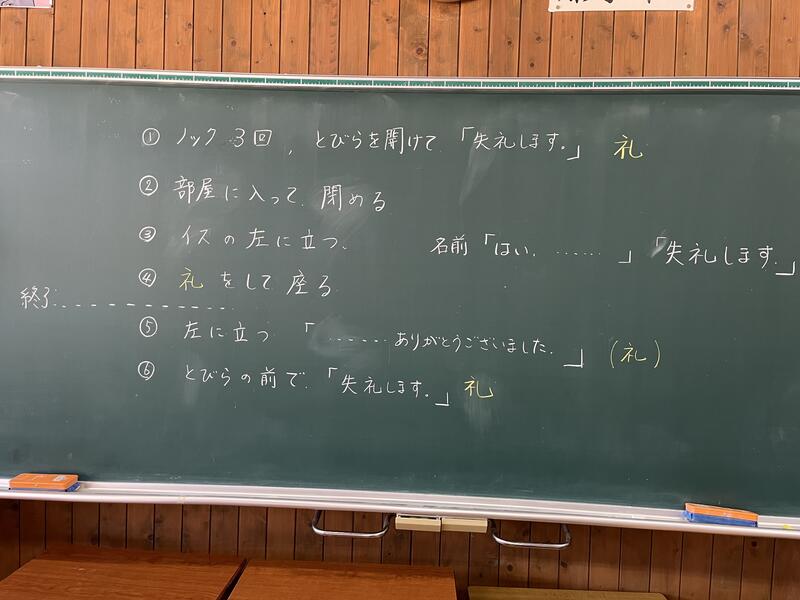 ① ノック 3回 、とびらを開けて「失礼します。」 礼
② 部屋に入って、閉める
③ イスの左に立つ、 名前「はい、……」「失礼します。」
④ 礼をして座る
終了: - - - - - - - - - - - -
⑤ 左に立つ 「……ありがとうございました。」 (礼)
⑥ とびらの前で、「失礼します。」礼